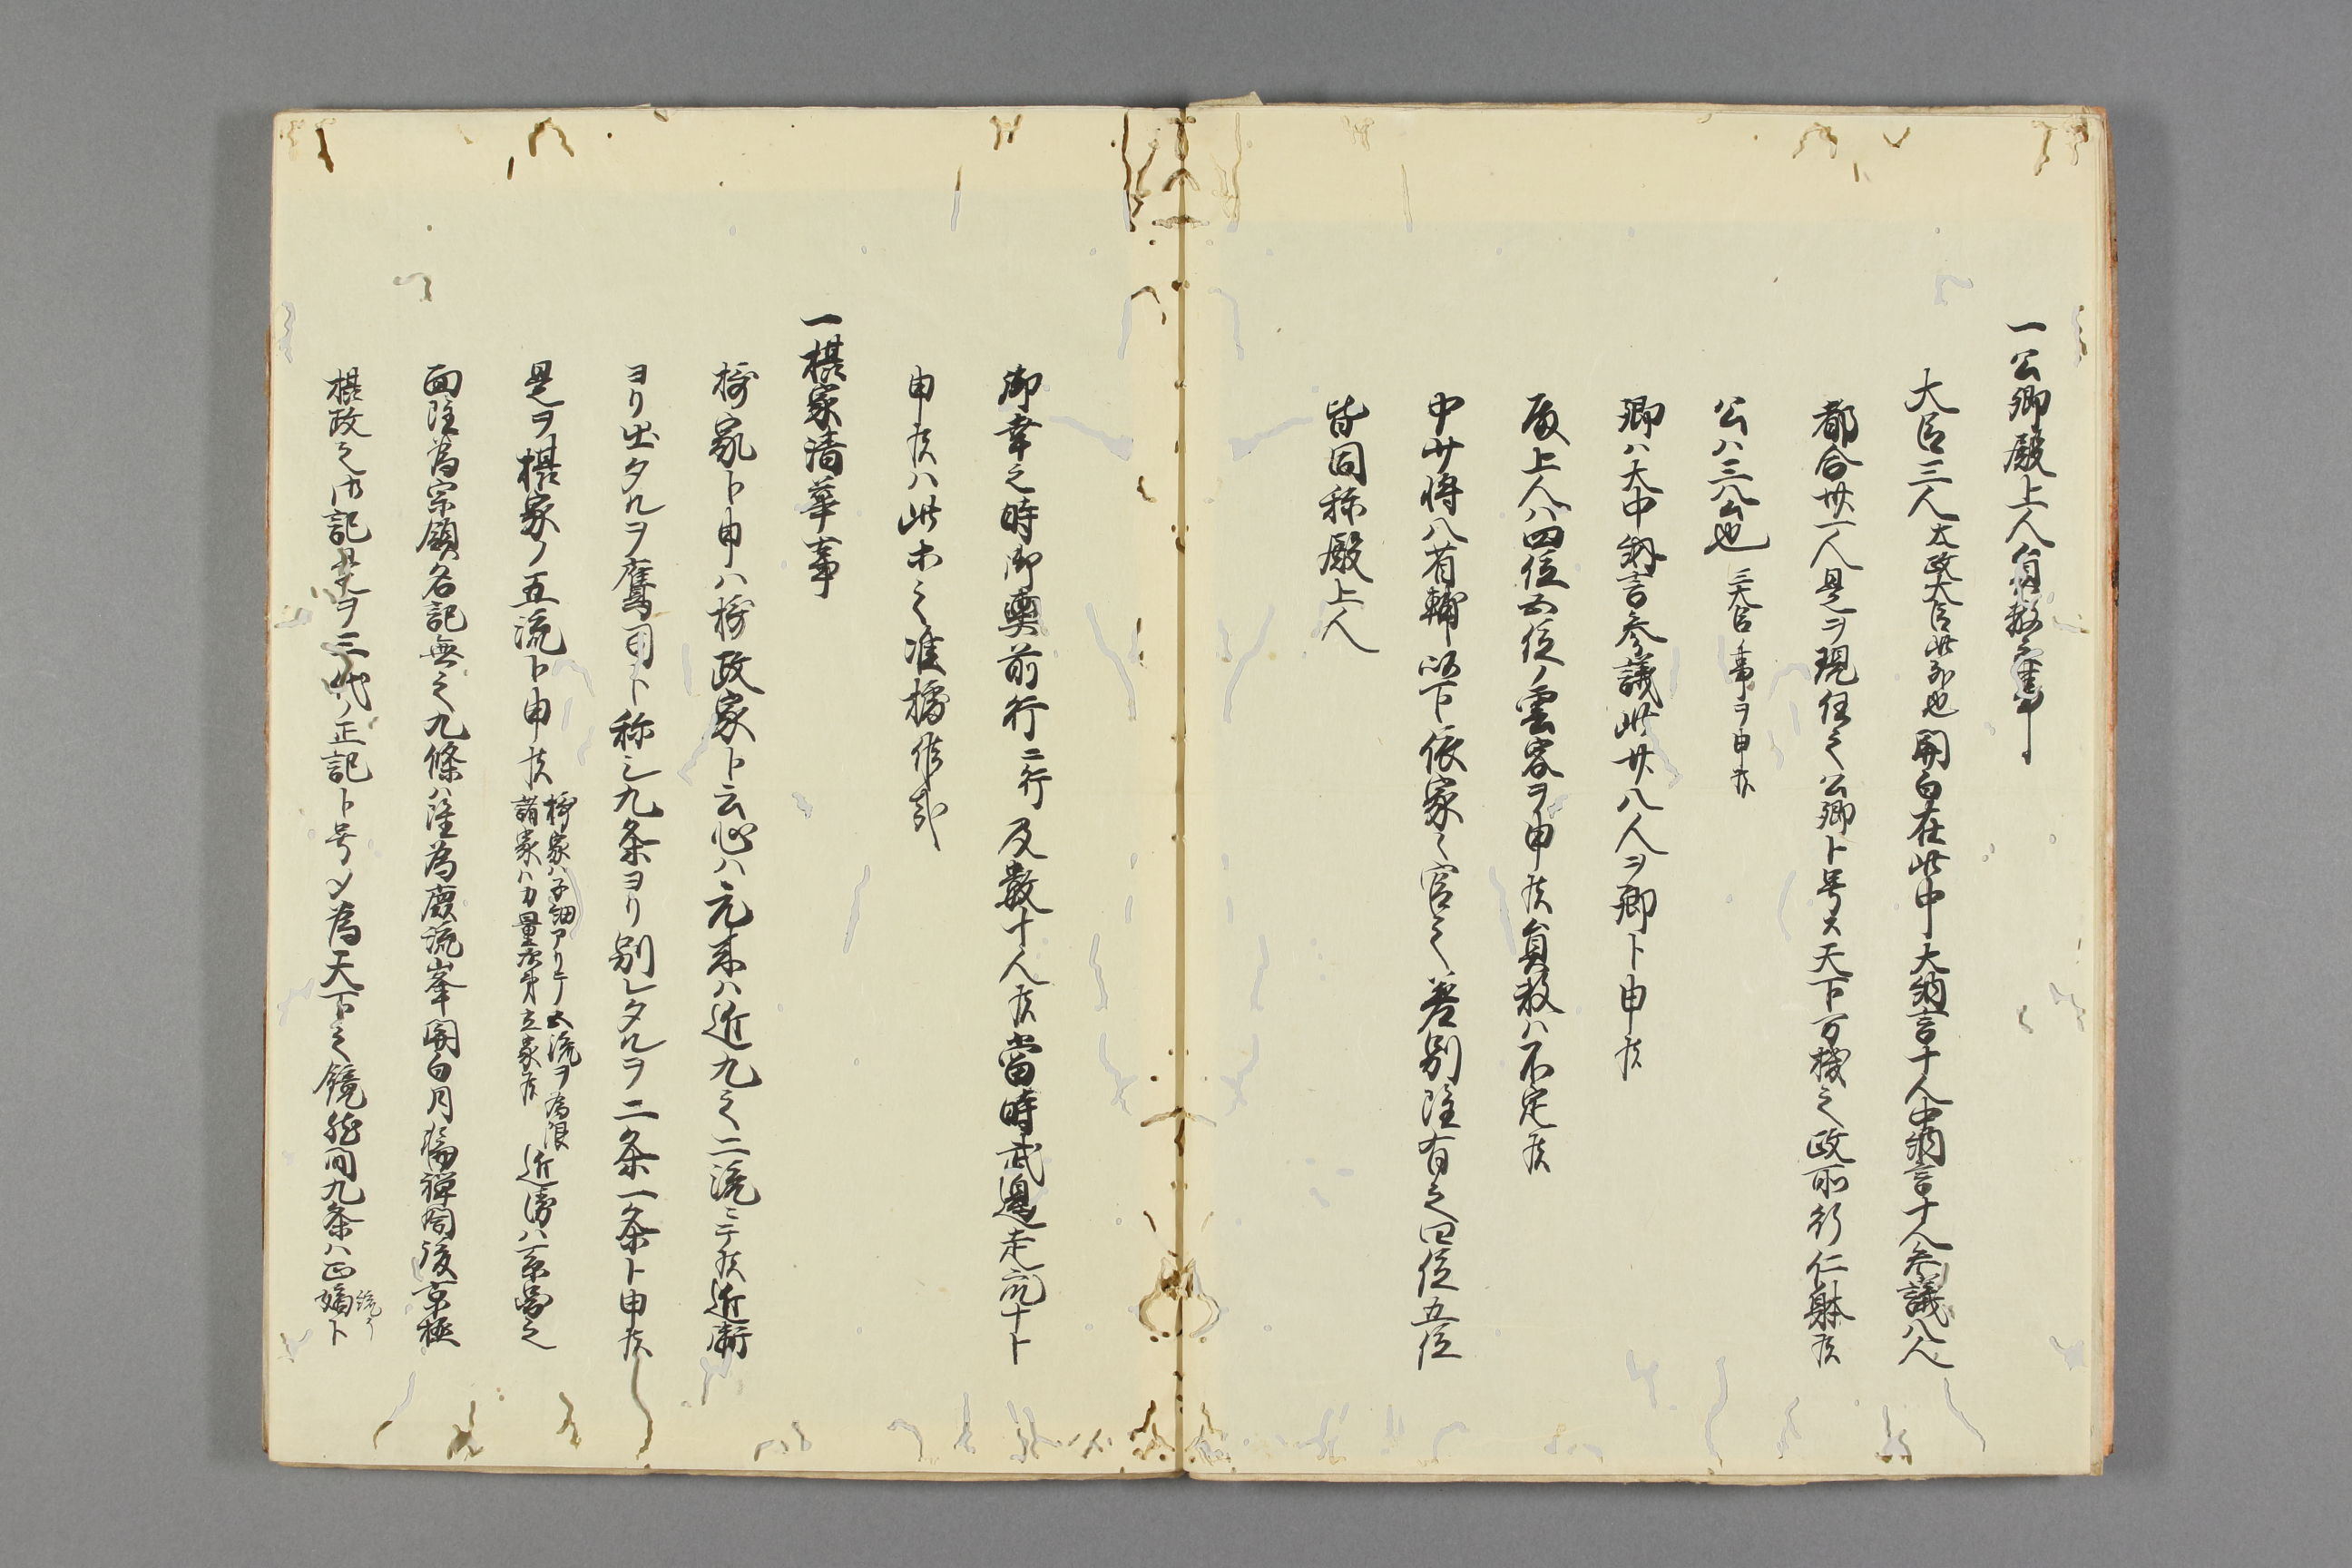 一公卿殿上人員数之事
大臣三人太政大臣此外也関白在此中大納言十人中納言十人参議八人
都合卅一人是ヲ現任之公卿ト号ス天下万機之政所行仁躰候
公ハ三公也三大臣ノ事ヲ申候
卿ハ大中納言参議此廿八人ヲ卿ト申候
殿上人ハ四位五位ノ雲客ヲ申候員数ハ不定候
中少将八省輔以下依家之官之差別雖有之四位五位
皆同称殿上人
御幸之時御輿前行二行及数十人候當時武邊走衆ナト
申候ハ此等之准據候哉
一摂家清華事
摂家ト申ハ摂政家ト云心ハ元来ハ近九之二流ニテ候近衛
ヨリ出タルヲ鷹司ト称シ九条ヨリ別レタルヲ二条一条ト申候
是ヲ摂家ノ五流ト申候
摂家ハ子細アリテ五流ヲ為限
諸家ハ力量次第立家候
近衛ハ系圖之
面雖為宗領名記無之九條ハ雖為庶流峯関白月輪禅閤後京極
摂政之御記ヲ三代ノ正記ト号シ為天下之鏡然間九条ハ正嫡ト